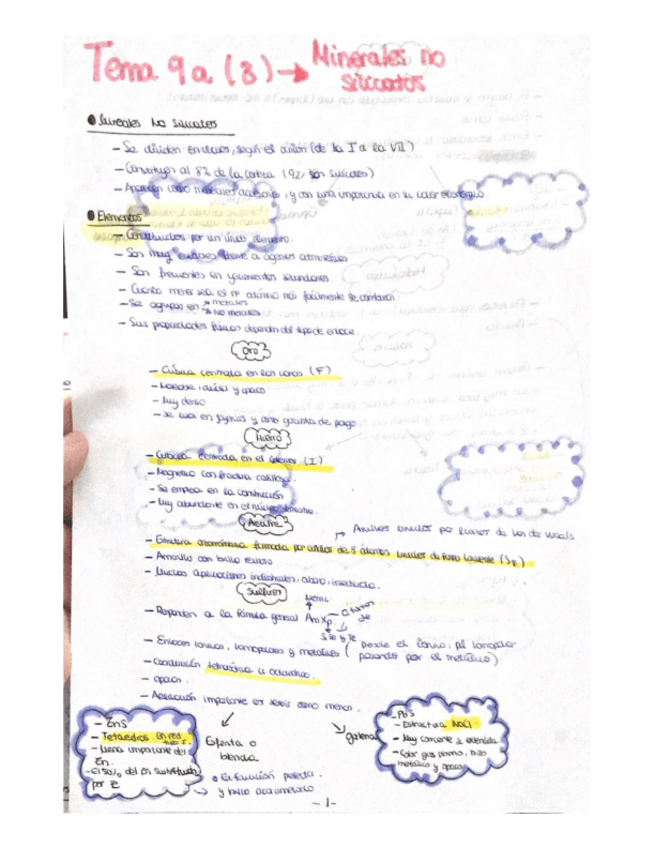 Tema 9a (8) → Minerales no
silicatos
● Minerales No silicatos
- Se dividen en clases, según el anión (de la I a la VII)
- Constituyen al 8% de la corteza (92% son silicatos)
- Aparecen como minerales accesorios, y con una importancia en su valor económico
● Elementos
- Constituidos por un único elemento.
- Son muy estables frente a agentes atmosféricos
- Son frecuentes en yacimientos secundarios.
- Cuanto menor sea el nº atómico más fácilmente se
- Se agrupan en → metales
→ No metales
- Sus propiedades físicas dependen del tipo de enlace.
Oro
- Cúbica centrada en las caras (F)
- Maleable, dúctil y opaco
- Muy denso
- Se usa en joyeros y como garantía de pago
Hierro
- Cúbica centrada en el interior (I)
- Magnético con fractura
- Se emplea en la construcción
- Muy abundante en el núcleo terrestre.
Azufre
→ Anillos unidos por fuerzas de Van der Waals
- Estructura formada por anillos de 8 átomos unidos de forma covalente (S8)
- Amarillo con brillo
- Muchas aplicaciones industriales, abono, insecticida.
Sulfuros
Metal
- Responden a la fórmula general AmXp
S, Se y Te
- Enlaces iónicos, homopolares y metálicos (Desde el iónico, al homopolar
pasando por el metálico)
- Coordinación tetraédrica u octaédrica.
- opacos.
- Aplicación importante es servir como menas.
- ZnS
- Tetraedros en red
- Mena importante del
Zn.
- El 50% del Zn sustituido
por
Esfalerita o
blenda
● Exfoliación perfecta.
→ y brillo acaramelado
galena
- PbS
- Estructura NaCl
- Muy corriente y extendida
- Color gris plomo, brillo
metálico y opaca
- 1 -